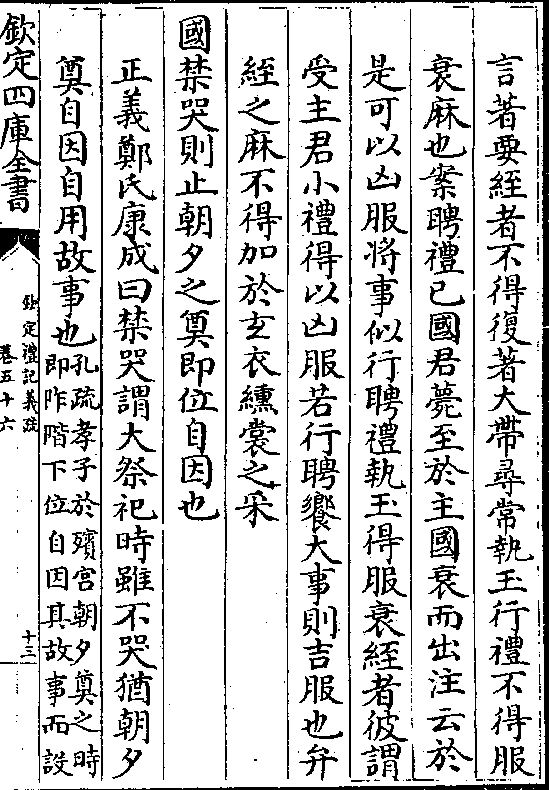 言著要絰者不得復著大帶尋常執玉行禮不得服
衰麻也案聘禮己國君薨至於主國衰而出注云於
是可以凶服將事似行聘禮執玉得服衰絰者彼謂
受主君小禮得以凶服若行聘饗大事則吉服也弁
絰之麻不得加於玄衣纁裳之采
國禁哭則止朝夕之奠即位自因也
正義鄭氏康成曰禁哭謂大祭祀時雖不哭猶朝夕
奠自因自用故事也孔疏孝子於殯宮朝夕奠之時
即阼階下位自因其故事而設
欽定四庫全書
欽定禮記義疏
卷五十六
十三